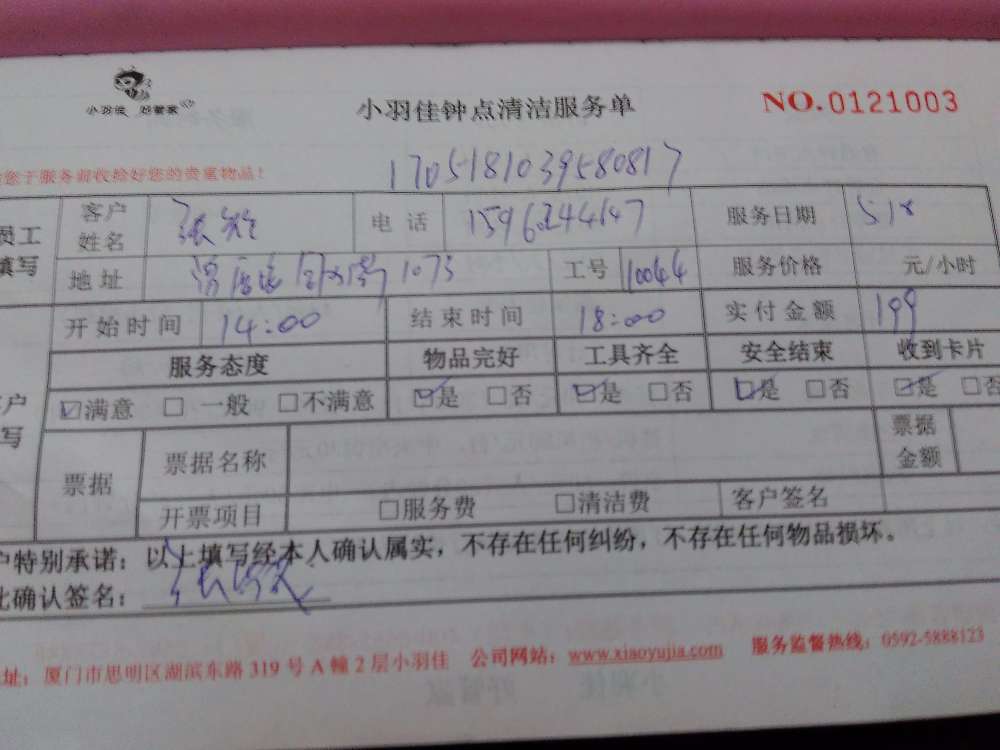 小羽佳 好管家
小羽佳钟点清洁服务单
NO.0121003
您于服务前收给好您的贵重物品！
1705181039580817
员工填写
客户姓名 张 电话 服务日期 5.18
地址 1073 工号 10044 服务价格 元/小时
开始时间 14:00 结束时间 18:00 实付金额 199
服务态度 物品完好 工具齐全 安全结束 收到卡片
☑满意 □一般 □不满意 ☑是 □否 ☑是 □否 ☑是 □否 ☑是 □否
票据 票据名称 票据金额
开票项目 □服务费 □清洁费 客户签名
户特别承诺：以上填写经本人确认属实，不存在任何纠纷，不存在任何物品损坏。
此确认签名：
址：厦门市思明区湖滨东路 319 号 A 幢 2 层小羽佳 公司网站：www.xiaoyujia.com 服务监督热线：0592-5888123